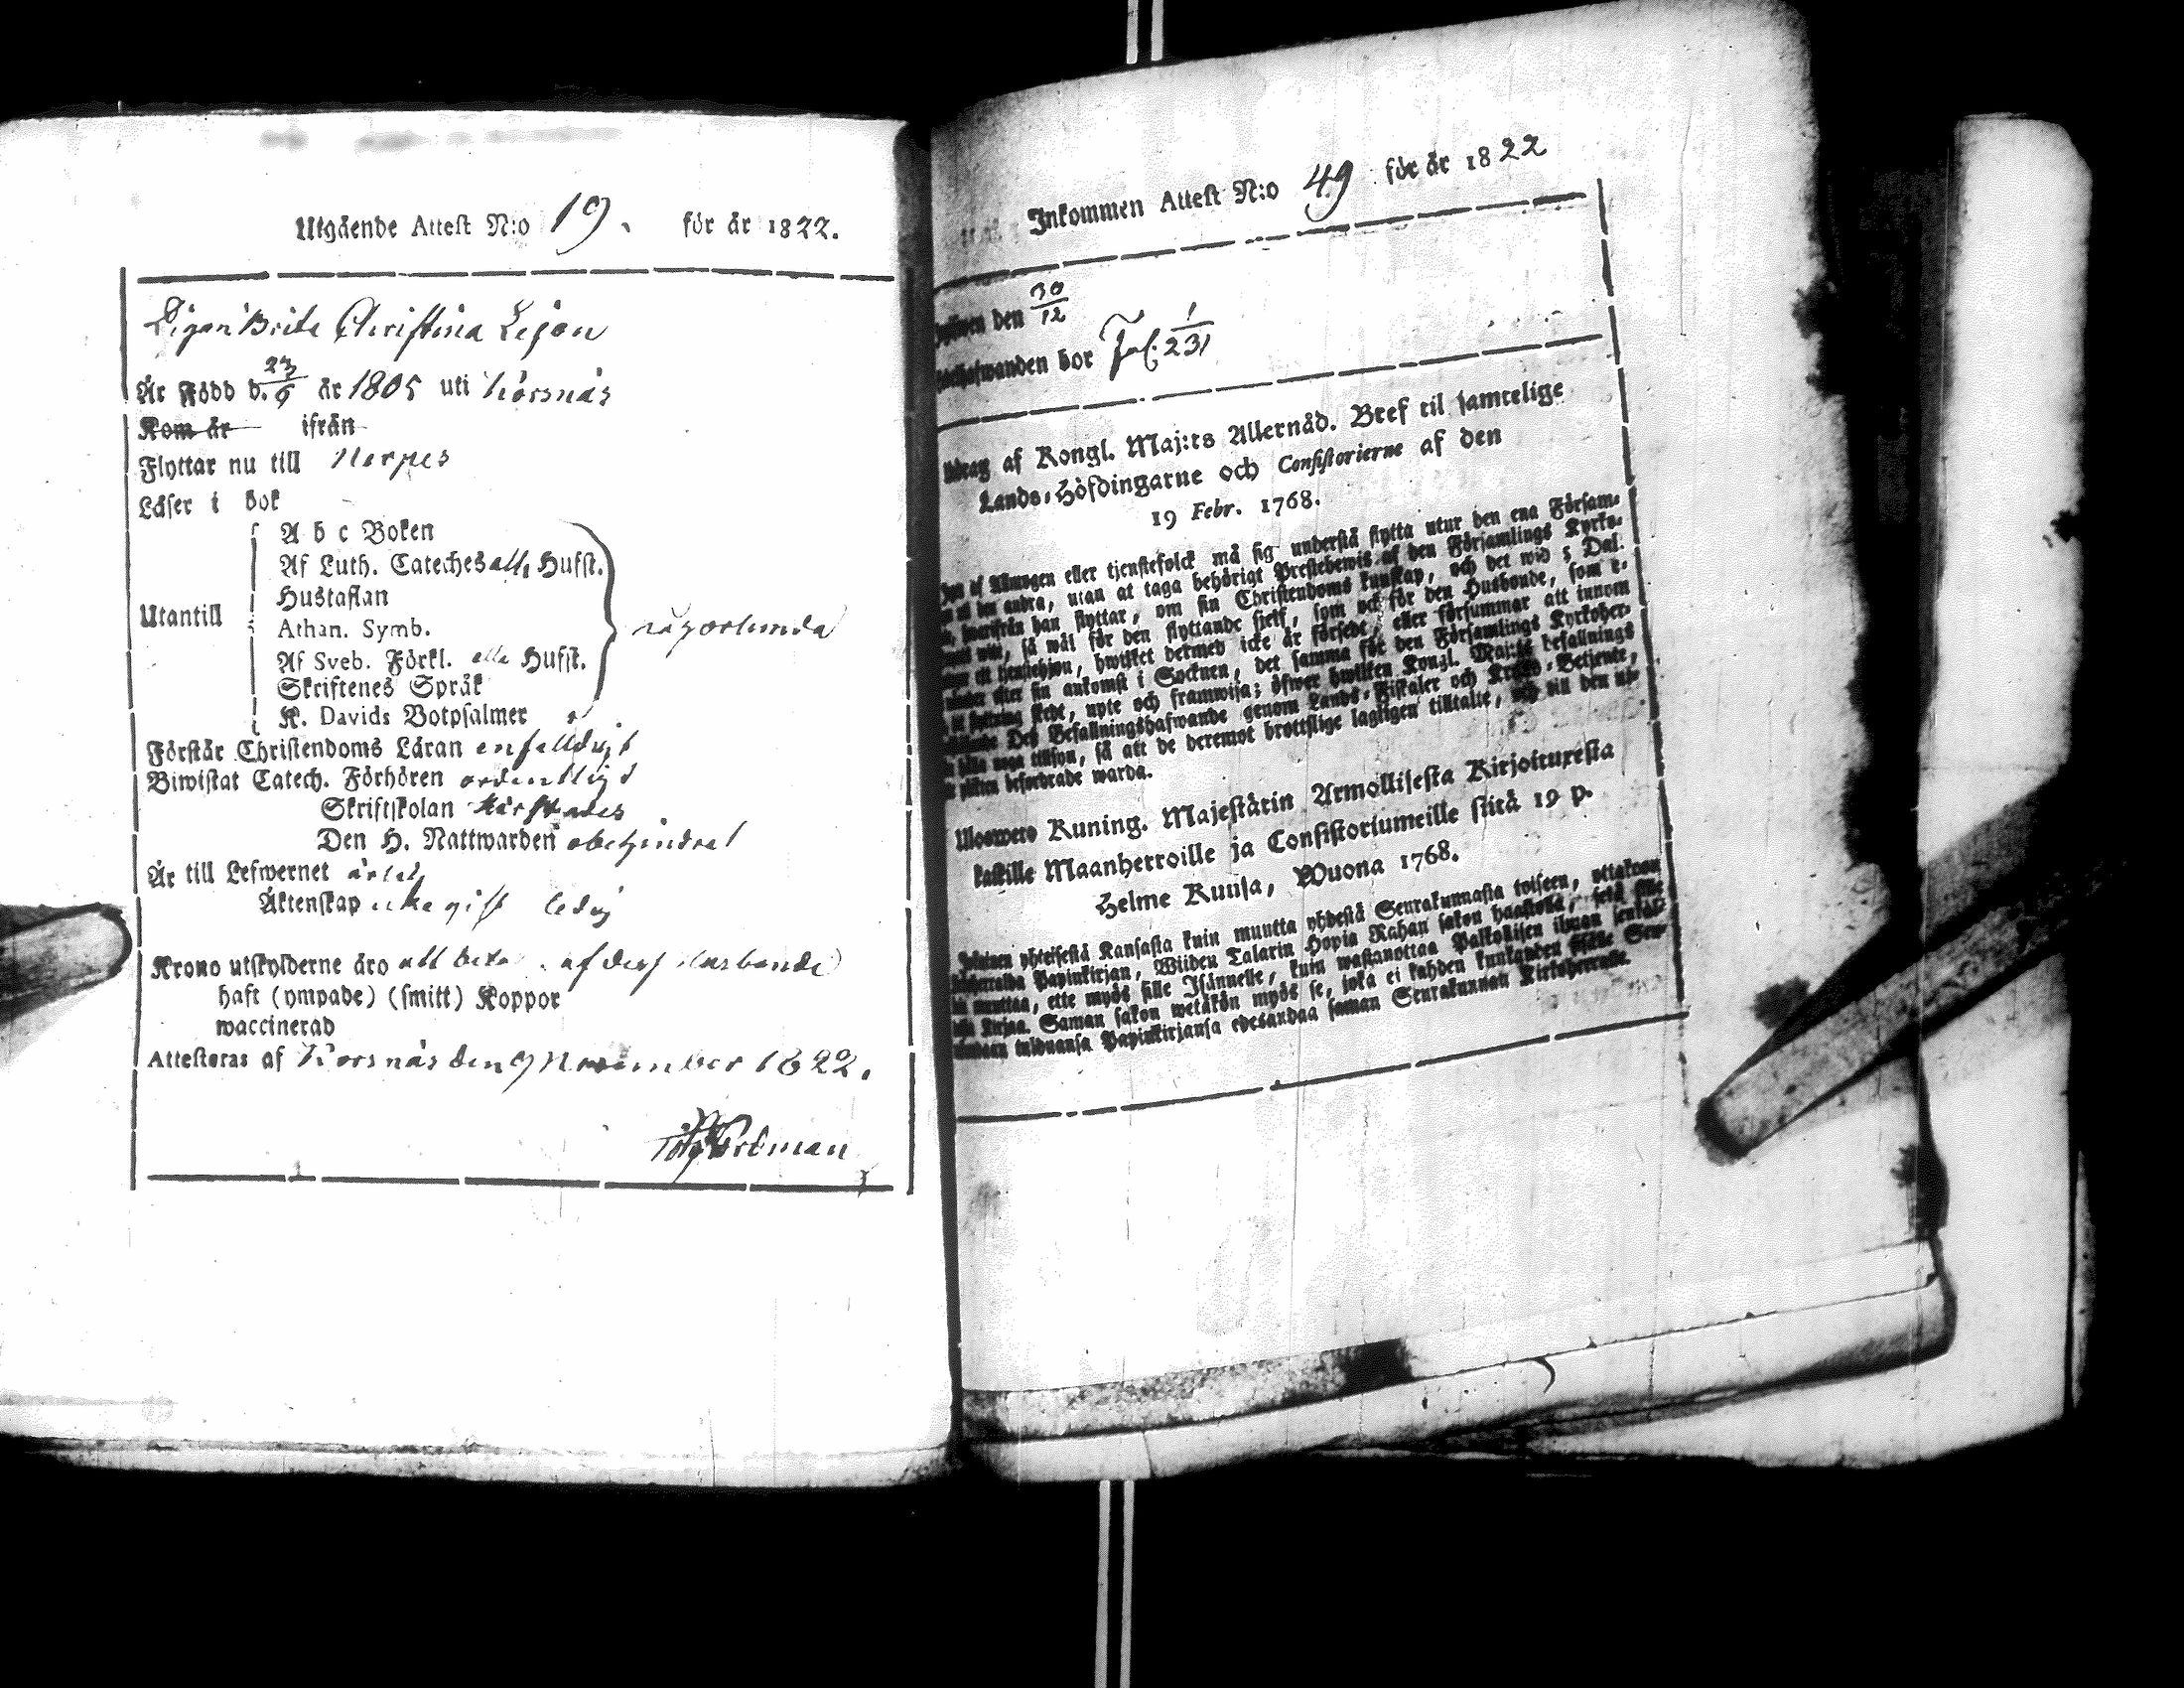 Utgående Attest N:o 19. för år 1822.
Pigan Brita Christina Lejon
Är Född d. 23/9 år 1805 uti Korsnäs
Kom år ifrån
Flyttar nu till Nerpes
Läser i bok
A b c Boken
Af Luth. Cateches alla Hufst.
Hustaflan
Utantill
Athan. Symb.
någorlunda
Af Sveb. Förkl. alla Hufst.
Skriftenes Språk
K. Davids Botpsalmer
Förstår Christendoms Läran enfalldigt
Biwistat Catech. Förhören ordentligt
Skriftskolan härstädes
Den H. Nattwarden obehindrat
Är till Lefwernet ärlig
Äktenskap icke gift ledig
Krono utskylderne äro att beta af dess Husbonde
haft (ympade) (smitt) Koppor
waccinerad
Attesteras af Korsnäs den 9 November 1822.
Nordman
Inkommen Attest N:o 49 för år 1822
den 30/12
bor Fol. 231
af Kongl. Maj:ts Allernåd. Bref til samtelige
Lands-Höfdingarne och Consistorierne af den
19 Febr. 1768.
af Allmogen eller tjenstefolck må sig understå flytta utur den ena Försam-
til den andra, utan at taga behörigt Prestebewis af den Församlings Kyrko-
hwarifrån han flyttar, om sin Christendoms kunskap, och det wid 5 Dal.
wite, så wäl för den flyttande sjelf, som ock för den Husbonde, som e-
ett tjenstehjon, hwilket dermed icke är försedt, eller försummar att innom
efter sin ankomst i Socknen, det samma för den Församlings Kyrkoher-
flyttning skedt, upte och framwisa; öfwer hwilken Kongl. Maj:ts befallnings
Des Befallningshafwande genom Lands-Fiskaler och Krono-Betjente,
hålla noga tillsyn, så att de deremot brottslige lagligen tilltalte, och till den
plikten befordrade warda.
Uloswero Kuning. Majestätin Armollisesta Kirjoituxesta
kaikille Maanherroille ja Consistoriumeille siitä 19 p.
Helme Kuusa, Wuona 1768.
yhteisestä Kansasta kuin muutta yhdestä Seurakunnasta toiseen, ottakoon
Papinkirjan, Wiiden Talarin Hopia Rahan sakon haastolla, sekä sille
muuttaa, ette myös sille Isännelle, kuin wastanottaa Palkollisen ilman
Kirjaa. Saman sakon wetäkön myös se, joka ei kahden kuukauden sisälle
tulduansa Papinkirjansa edesandaa saman Seurakunnan Kirkoherralle.